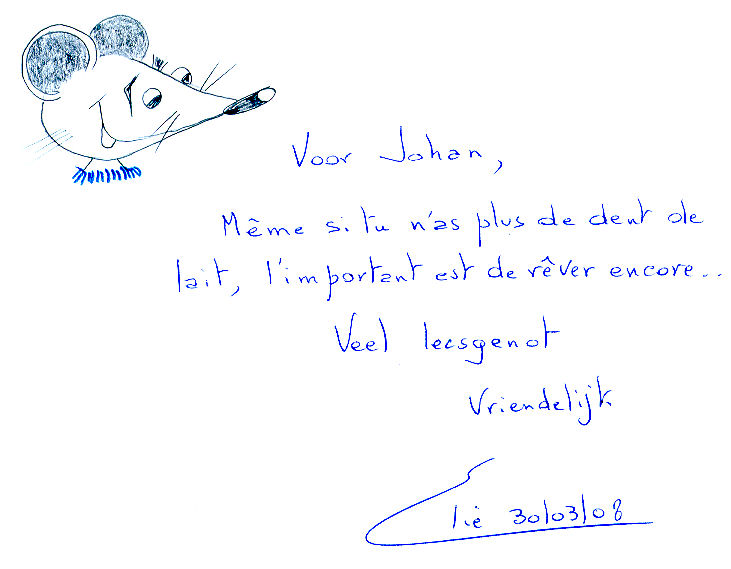 Voor Johan,
Même si tu n'as plus de dent de
lait, l'important est de rêver encore..
Veel leesgenot
Vriendelijk
30/03/08